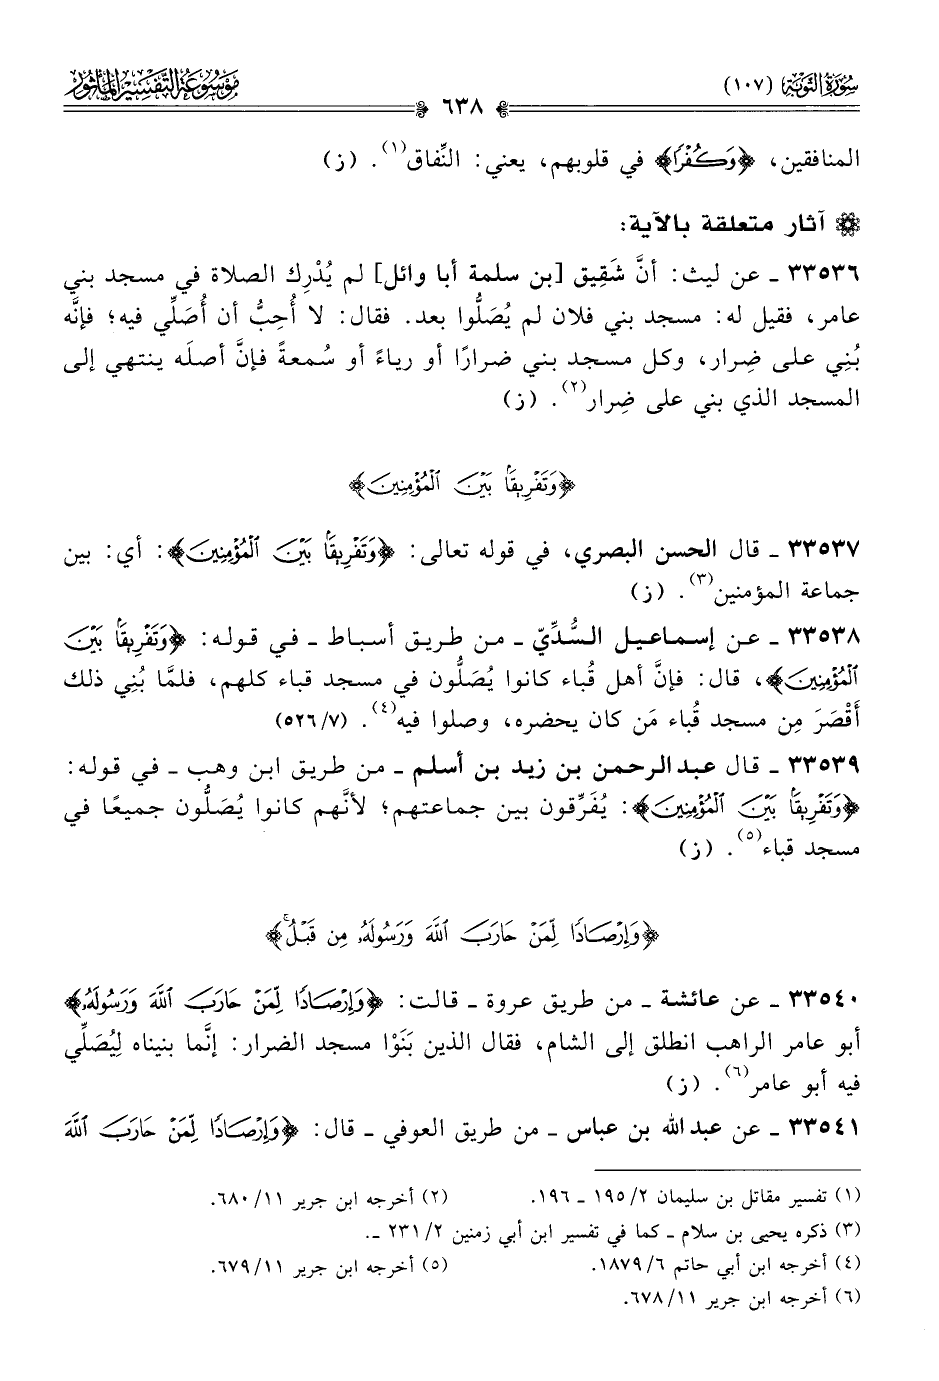 سُورَةُ التَّوبَة (١٠٧)
مَوْسُوعَةُ التَّفْسِيرِ المَأْثُورِ
٦٣٨
المنافقين، ﴿وَكُفْرًا﴾ في قلوبهم، يعني: النِّفاق(١). (ز)
آثار متعلقة بالآية:
٣٣٥٣٦ ـ عن ليث: أنَّ شَقِيق [بن سلمة أبا وائل] لم يُدْرِك الصلاة في مسجد بني
عامر، فقيل له: مسجد بني فلان لم يُصَلُّوا بعد. فقال: لا أُحِبُّ أن أُصَلِّي فيه؛ فإنَّه
بُنِي على ضِرار، وكل مسجد بني ضرارًا أو رياءً أو سُمعةً فإنَّ أصلَه ينتهي إلى
المسجد الذي بني على ضِرار(٢). (ز)
﴿وَتَفْرِيقًۢا بَيْنَ ٱلْمُؤْمِنِينَ﴾
٣٣٥٣٧ ـ قال الحسن البصري، في قوله تعالى: ﴿وَتَفْرِيقًۢا بَيْنَ ٱلْمُؤْمِنِينَ﴾: أي: بين
جماعة المؤمنين(٣). (ز)
٣٣٥٣٨ ـ عن إسماعيل السُّدِّيّ ـ من طريق أسباط ـ في قوله: ﴿وَتَفْرِيقًۢا بَيْنَ
ٱلْمُؤْمِنِينَ﴾، قال: فإنَّ أهل قُباء كانوا يُصَلُّون في مسجد قباء كلهم، فلمَّا بُنِي ذلك
أَقْصَرَ مِن مسجد قُباء مَن كان يحضره، وصلوا فيه(٤). (٥٢٦/٧)
٣٣٥٣٩ ـ قال عبدالرحمن بن زيد بن أسلم ـ من طريق ابن وهب ـ في قوله:
﴿وَتَفْرِيقًۢا بَيْنَ ٱلْمُؤْمِنِينَ﴾: يُفَرِّقون بين جماعتهم؛ لأنَّهم كانوا يُصَلُّون جميعًا في
مسجد قباء(٥). (ز)
﴿وَإِرْصَادًا لِّمَنْ حَارَبَ ٱللَّهَ وَرَسُولَهُۥ مِن قَبْلُ ۚ﴾
٣٣٥٤٠ ـ عن عائشة ـ من طريق عروة ـ قالت: ﴿وَإِرْصَادًا لِّمَنْ حَارَبَ ٱللَّهَ وَرَسُولَهُۥ﴾
أبو عامر الراهب انطلق إلى الشام، فقال الذين بَنَوْا مسجد الضرار: إنَّما بنيناه لِيُصَلِّي
فيه أبو عامر(٦). (ز)
٣٣٥٤١ ـ عن عبدالله بن عباس ـ من طريق العوفي ـ قال: ﴿وَإِرْصَادًا لِّمَنْ حَارَبَ ٱللَّهَ
(١) تفسير مقاتل بن سليمان ١٩٥/٢ ـ ١٩٦. (٢) أخرجه ابن جرير ٦٨٠/١١.
(٣) ذكره يحيى بن سلام ـ كما في تفسير ابن أبي زمنين ٢٣١/٢ ـ.
(٤) أخرجه ابن أبي حاتم ١٨٧٩/٦. (٥) أخرجه ابن جرير ٦٧٩/١١.
(٦) أخرجه ابن جرير ٦٧٨/١١.